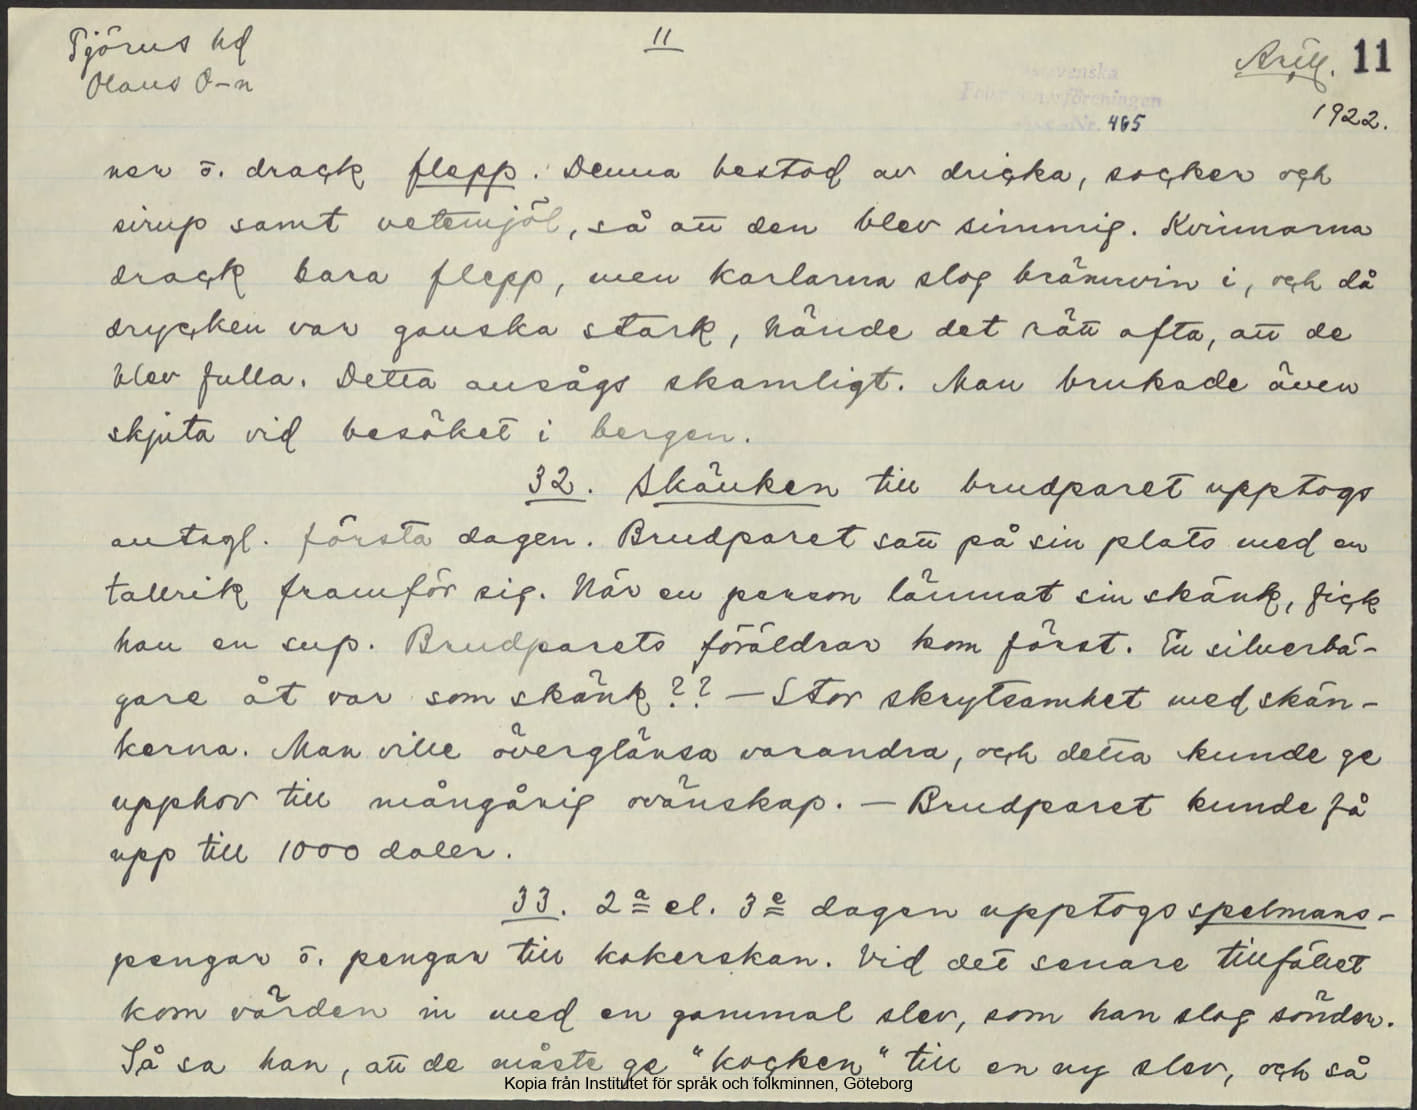 Tjörns hd
Olaus O-n
11
Arill. 11
1922.
svenska
föreningen
465
ner o. drack flepp. Denna bestod av dricka, socker och
sirup samt vetemjöl, så att den blev simmig. Kvinnorna
drack bara flepp, men karlarna slog brännvin i, och då
drycken var ganska stark, hände det rätt ofta, att de
blev fulla. Detta ansågs skamligt. Man brukade även
skjuta vid besöket i bergen.
32. Skänken till brudparet upptogs
antagl. första dagen. Brudparet satt på sin plats med en
tallrik framför sig. När en person lämnat sin skänk, fick
han en sup. Brudparets föräldrar kom först. En silverbä-
gare åt var som skänk?? — Stor skrytsamhet med skän-
kerna. Man ville överglänsa varandra, och detta kunde ge
upphov till mångårig ovänskap. — Brudparet kunde få
upp till 1000 daler.
33. 2a el. 3e dagen upptogs spelmans-
pengar o. pengar till kokerskan. Vid det senare tillfället
kom värden in med en gammal slev, som han slog sönder.
Så sa han, att de måste ge "kocken" till en ny slev, och så
Kopia från Institutet för språk och folkminnen, Göteborg